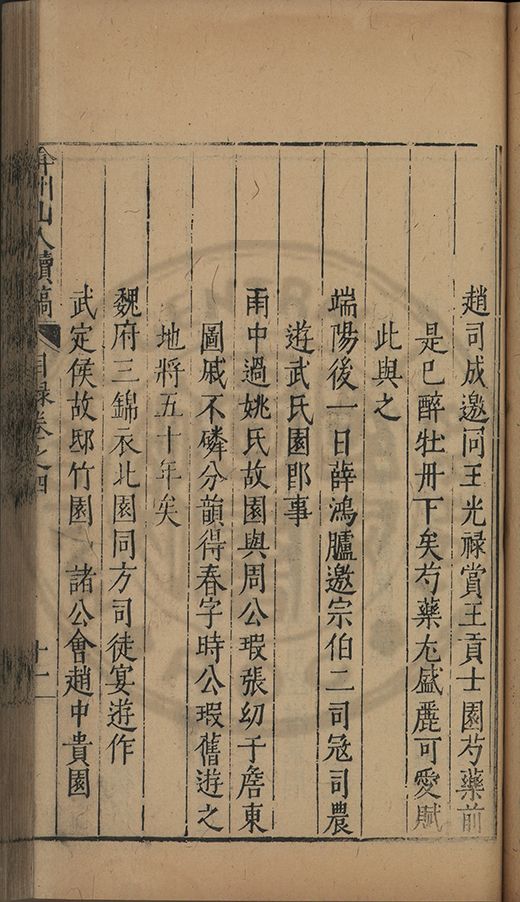 趙司成邀同王光祿賞王貢士園芍藥前
是已醉牡丹下矣芍藥尤盛麗可愛賦
此與之
端陽後一日薛鴻臚邀宗伯二司冦司農
遊武氏園即事
雨中過姚氏故園與周公瑕張幼于詹東
圖戚不磷分韻得春字時公瑕舊遊之
地將五十年矣
魏府三錦衣北園同方司徒宴遊作
武定侯故邸竹園 諸公會趙中貴園
弇州山人續稿 目録卷之四 十一